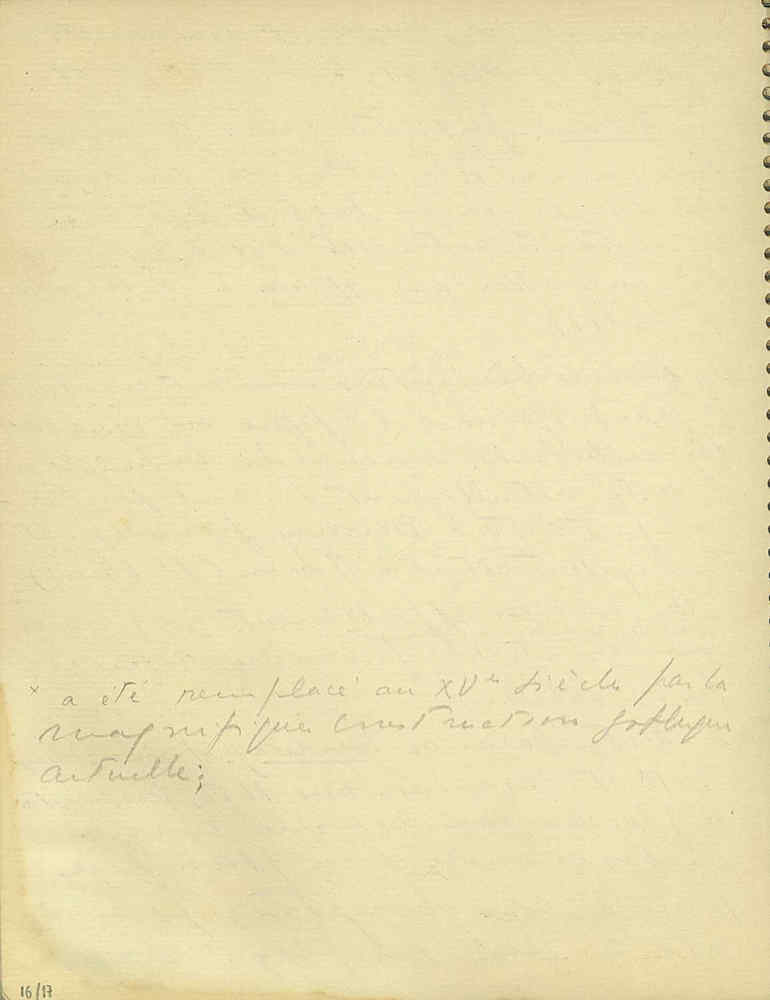 x a été remplacé au XVe siècle par la
magnifique construction gothique
actuelle;
16/17